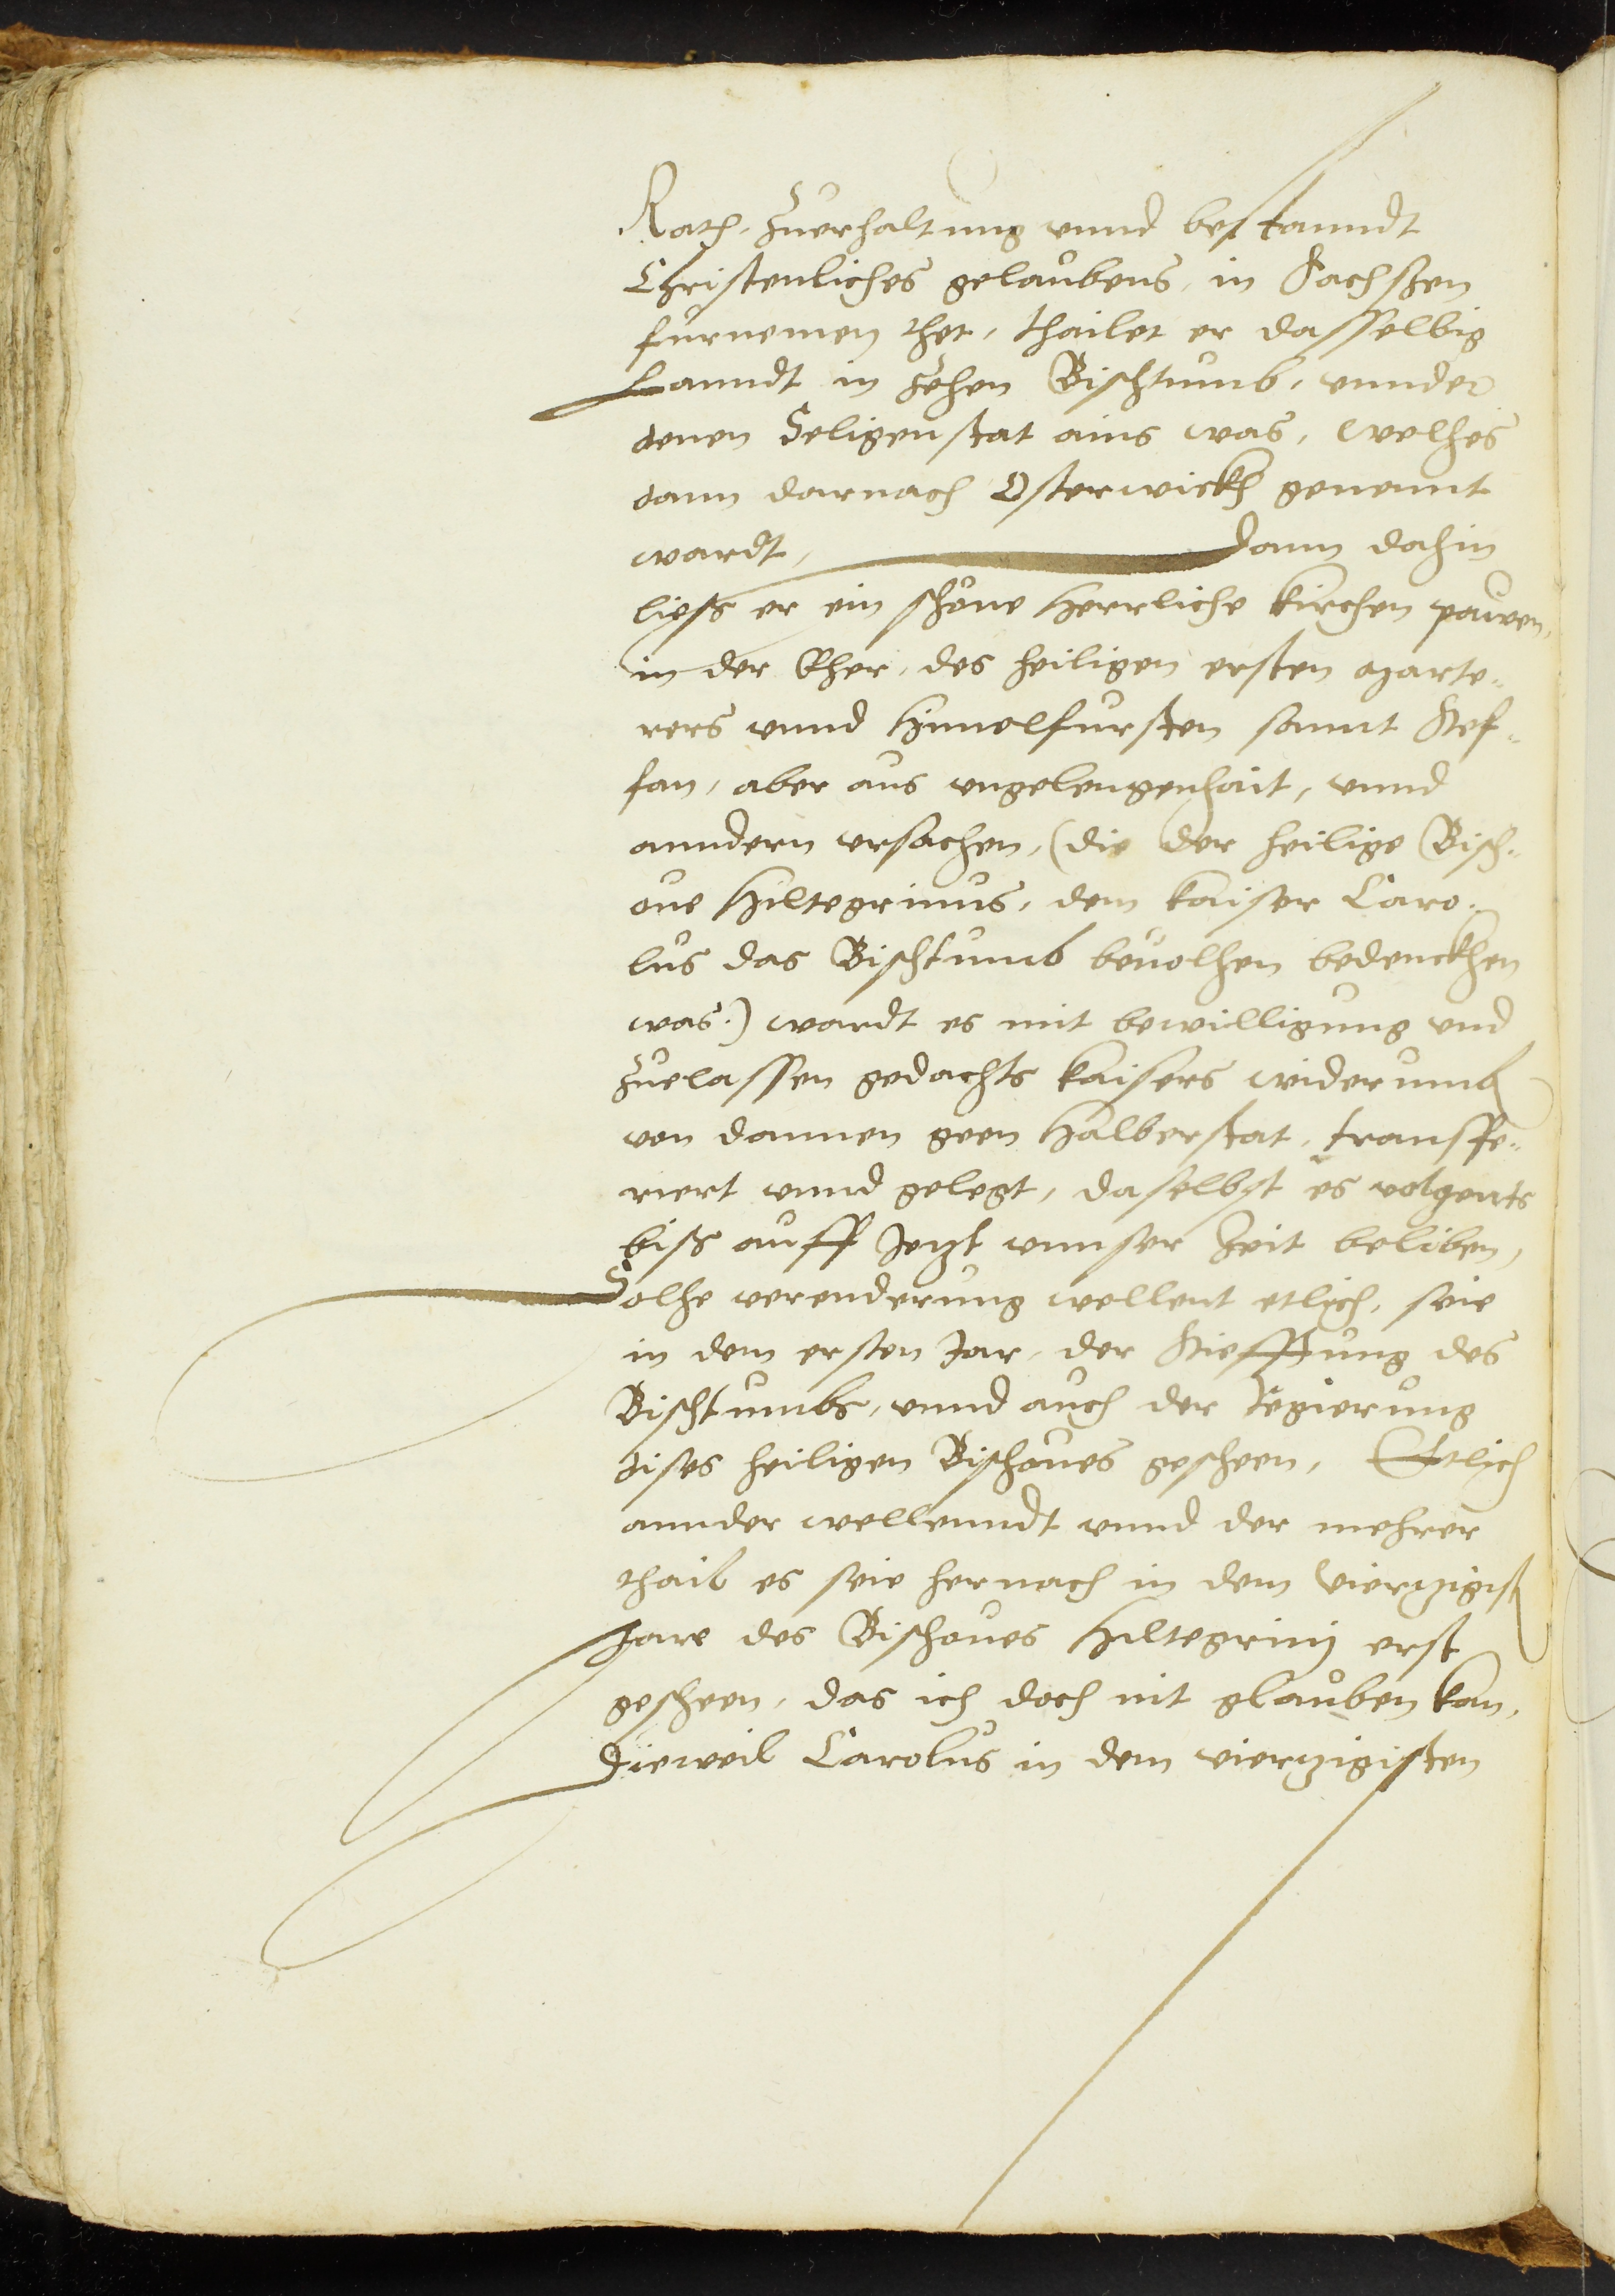 Rath, zuerhaltung vnnd bestanndt
Christenliches gelaubens, in Sachssen
furnemen thet, thailet er dasselbig
Lanndt in zehen Bischtumb, vnnder
denen Seligenstat ains was, welhes
dann darnach Osterwickh genennt
wardt, dann dahin
liess er ein schöne Herrliche kirchen pauen,
in der Eher, des heiligen ersten Marte¬
rers vnnd Himelfursten sannt Stef¬
fan, aber aus vngelengenhait, vnnd
anndern vrsachen, (die der heilige Bisch¬
oue Hiltegrinus, dem kaiser Caro¬
lus das Bischtumb beuolhen bedenckhen
was.) wardt es mit bewilligung vnd
zuelassen gedachts kaisers widerumb
von dannen geen Halberstat, transffe¬
riert vnnd gelegt, daselbst es volgents
biss auff Jetzt vnnser Zeit beliben,
Solhe verenderung wellent etlich, seie
in dem ersten Jar, der Stiefftung des
Bischtumbs, vnnd auch der Regierung
dises heiligen Bischoues gescheen, Etlich
annder wellenndt vnnd der mehrer
thail es seie hernach in dem vierzigist
Jare des Bischoues Hiltegrinj erst
gescheen, das ich doch nit glauben kan,
Dieweil Carolus in dem vierzigisten